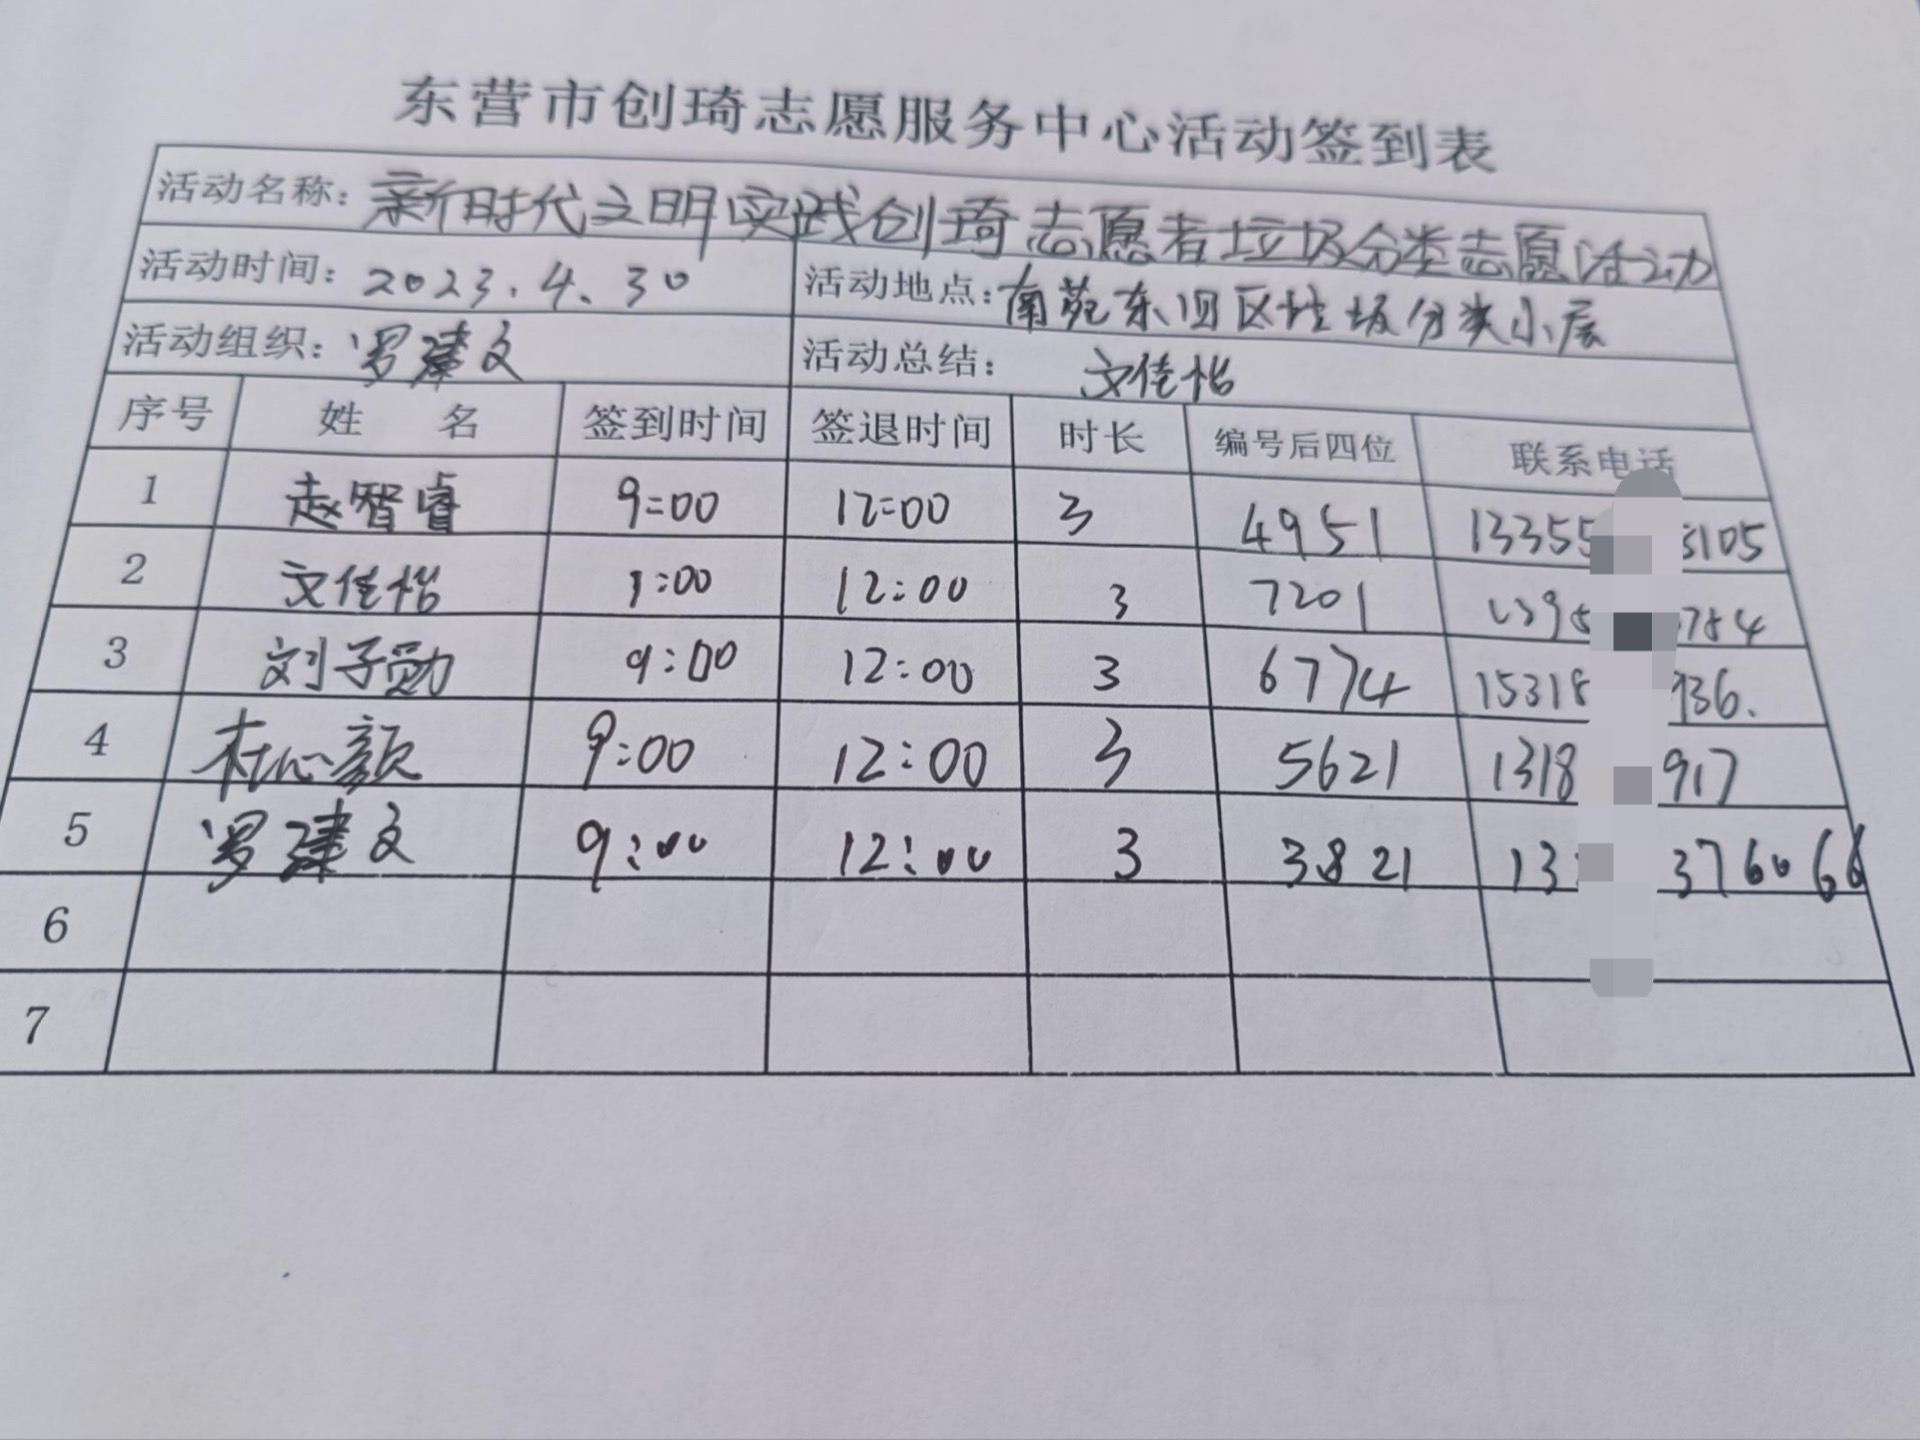 东营市创琦志愿服务中心活动签到表
活动名称：新时代文明实践创琦志愿者垃圾分类志愿活动
活动时间：2023.4.30 活动地点：南苑东旧区垃圾分类小屋
活动组织：罗建文 活动总结：文佳怡
序号 姓名 签到时间 签退时间 时长 编号后四位 联系电话
1 赵智睿 9:00 12:00 3 4951 13355 5105
2 文佳怡 9:00 12:00 3 7201 1395 784
3 刘子勋 9:00 12:00 3 6774 15318 936.
4 杜心颜 9:00 12:00 3 5621 1318 917
5 罗建文 9:00 12:00 3 3821 13 376066
6
7